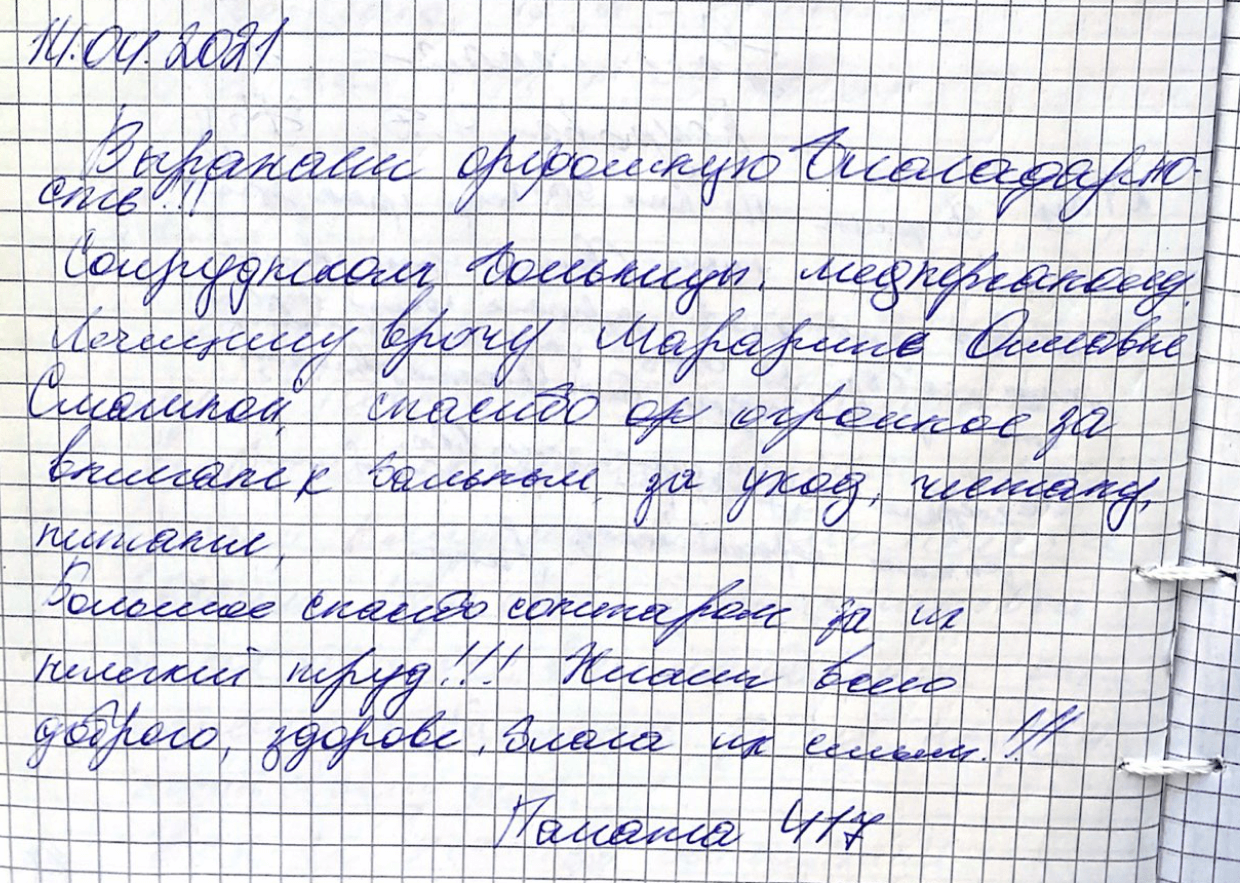 14.04.2021
Выражаем огромную благадарно-
сть!!!
Сотрудникам больницы, медперсаналу,
Лечищему врачу Маразине Олеговне
спасибо огромное за
внимание к больным, за уход, чистату,
питание,
Большое спасибо санитарам за их
нелегкий труд!!! Желаем всего
доброго, здоровье, блага их семьям.!!!
Палата 417